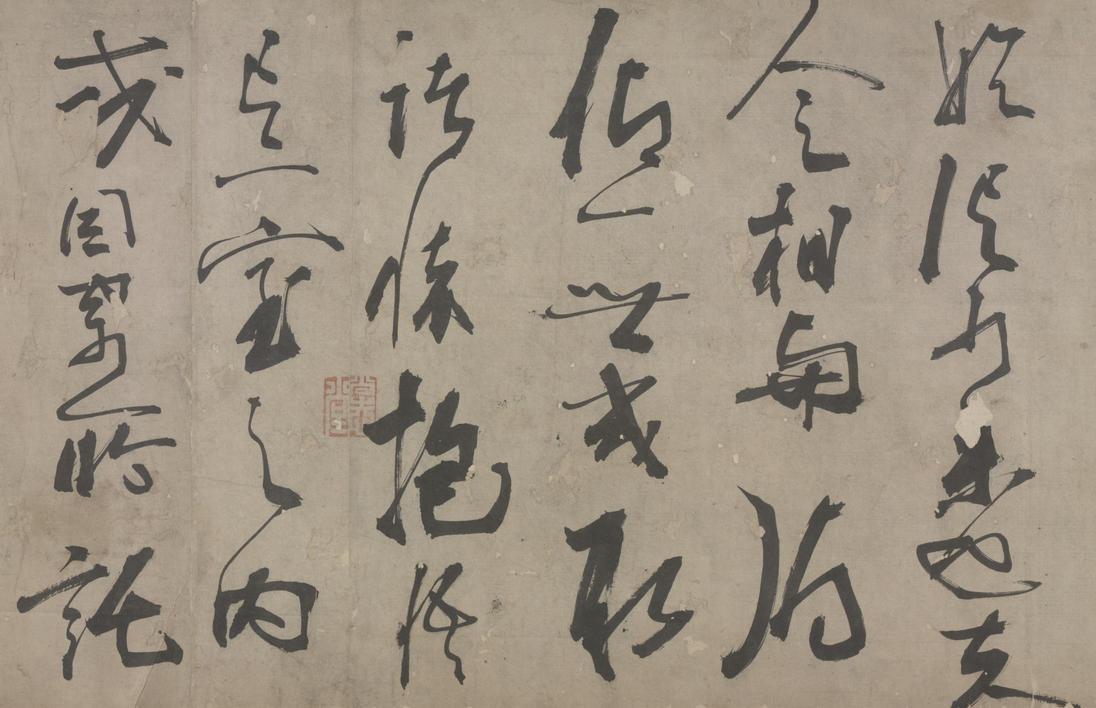 娛信可樂也夫
人之相與俯
仰一世或取
諸懷抱悟
言一室之內
或因寄所託